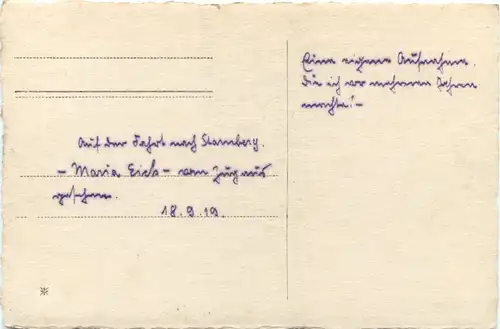 Auf der Fahrt nach Starnberg.
- Maria Eich - vom Zug aus
gesehen.
18.9.19.
Eine eigene Aufnahme.
Die ich vor mehreren Jahren
machte! -